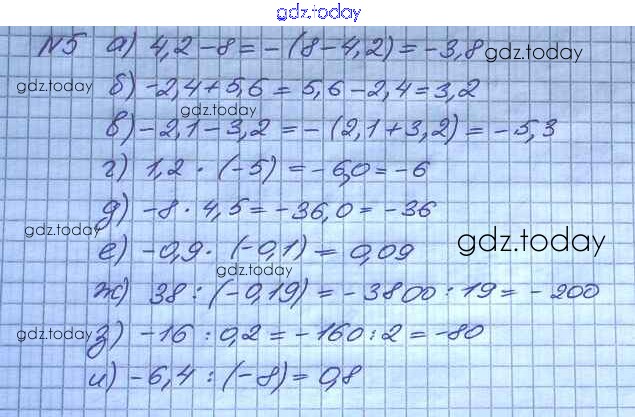 gdz.today
№5 а) 4,2-8=-(8-4,2)=-3,8 gdz.today
gdz.today б) -2,4+5,6=5,6-2,4=3,2
gdz.today
в) -2,1-3,2=-(2,1+3,2)=-5,3
г) 1,2·(-5)=-6,0=-6
gdz.today
д) -8·4,5=-36,0=-36
gdz.today
е) -0,9·(-0,1)=0,09 gdz.today
gdz.today
ж) 38:(-0,19)=-3800:19=-200
gdz.today з) -16:0,2=-160:2=-80
и) -6,4:(-8)=0,8